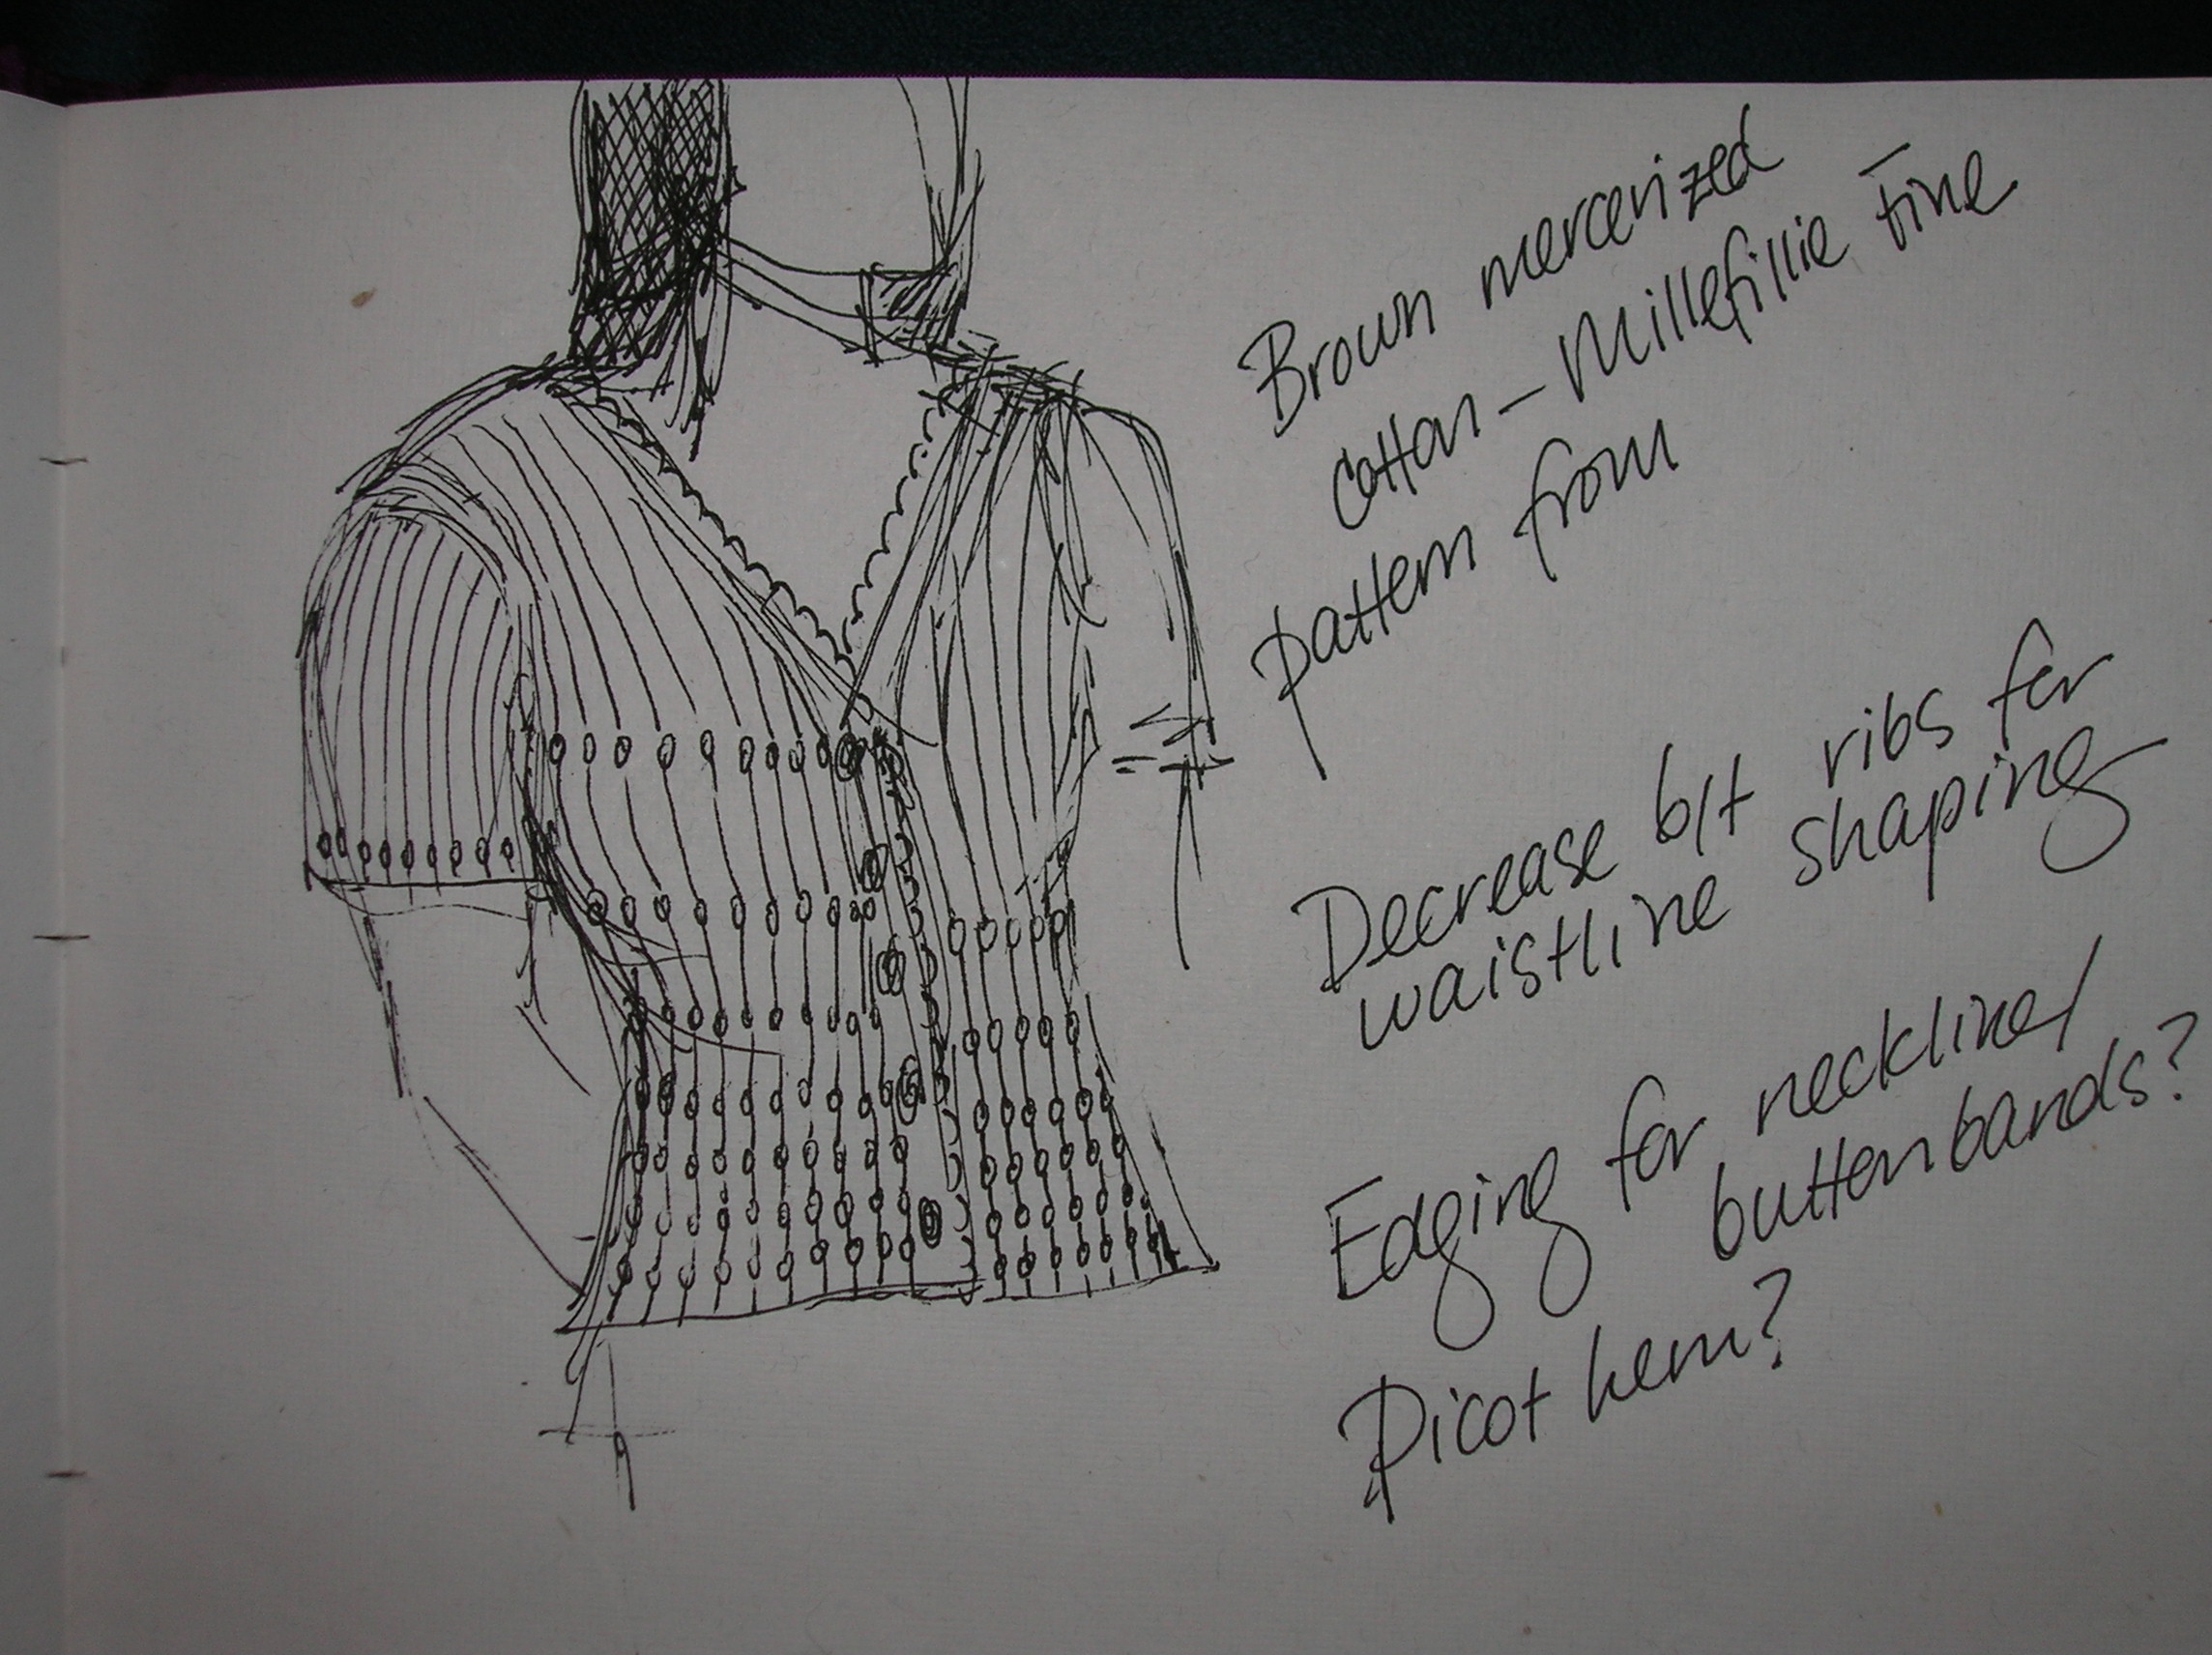 Brown mercerized
cotton – Millefillie fine
pattern from
Decrease b/t ribs for
waistline shaping
Edging for neckline/
buttonbands?
Picot hem?